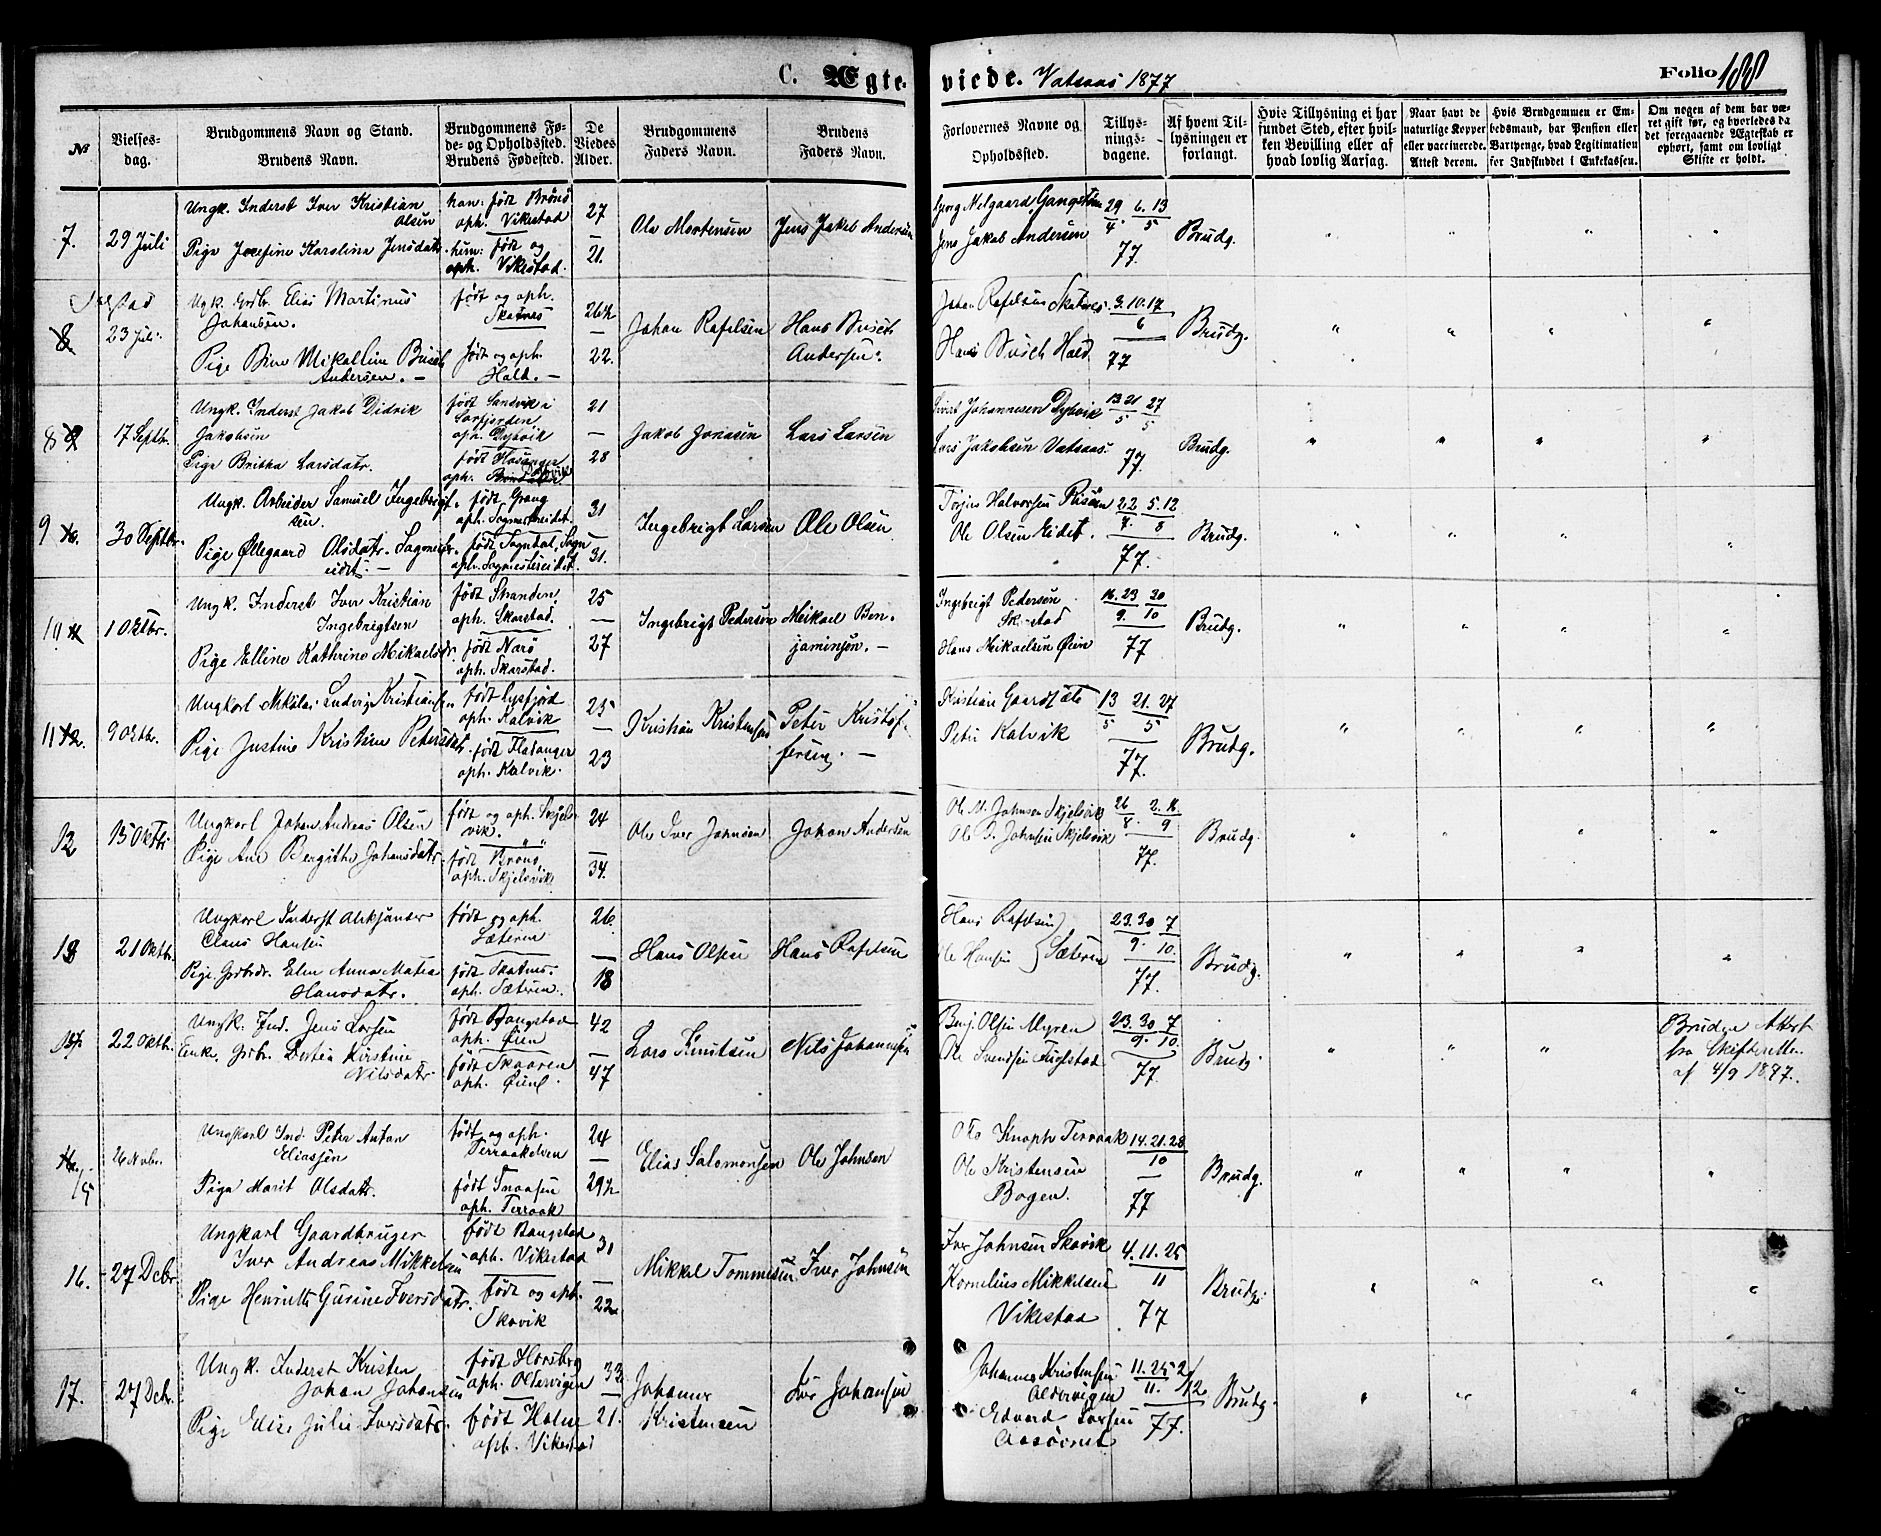 C. Ægte-
viede. Vatsaas 1877
Folio 188
№
Vielses-
dag.
Brudgommens Navn og Stand.
Brudens Navn.
Brudgommens Fø-
de- og Opholdssted.
Brudens Fødested.
De
Viedes
Alder.
Brudgommens
Faders Navn.
Brudens
Faders Navn.
Forlovernes Navne og
Opholdssted.
Tillys-
nings-
dagene.
Af hvem Til-
lysningen er
forlangt.
Hvis Tillysning ei har
fundet Sted, efter hvil-
ken Bevilling eller af
hvad lovlig Aarsag.
Naar havt de
naturlige Kopper
eller vaccinerede.
Attest derom.
Hvis Brudgommen er Em-
bedsmand, har Pension eller
Vartpenge, hvad Legitimation
for Indskuddet i Enkekassen.
Om nogen af dem har væ-
ret gift før, og hvorledes da
det foregaaende Ægteskab er
ophørt, samt om lovligt
Skifte er holdt.
7.
29 Juli
Ungk. Inderst Iver Kristian
Olsen
Pige Josefine Karoline Jensdatr.
han: født Brønø
oph. Vikestad
hun: født og
oph. Vikestad.
27
21.
Ole Mortensen
Jens Jakob Andersen
Jens Jakob Andersen
29/4. 6. 13/5
77
Brudg.
8
23 Juli
Ugk. Grdbr. Elias Martinus
Johansen.
Pige Mikalline Busch
Andersen. –
født og oph.
Skatnes
født og oph.
Hald. –
26½
22.
Johan Rafelsen
Hans Busch
Andersen.
Johan Rafelsen Skatnes
Hans Busch Hald
3. 10. 17/6
77
Brudg.
8
17 Septbr.
Ungk. Inderst Jakob Didrik
Jakobsen
Pige Britha Larsdatr.
født Sandvik i
Sørfjorden
oph. Dybvik
født
oph.
21
28
Jakob Jonasen
Lars Larsen
Johannesen Dybvik
Lars Jakobsen Vatsaas.
13. 21/5 27/5
77.
Brudg.
9
30 Septbr.
Ungk. Arbeider Samuel Ingebrigt-
sen.
Pige Øllegaard Olsdatr. Sagmestr.
eidet. –
født Grong
oph. Sagmestereidet.
født Sogndal, Sogn
oph. Sagmestereidet.
31
31.
Ingebrigt Larsen
Ole Olsen
Halvorsen
Ole Olsen Eidet.
22/7. 5. 12/8
77.
Brudg.
10
1 Oktbr.
Ungk. Inderst Iver Kristian
Ingebrigtsen
Pige Elline Kathrine Mikaelsdr.
født Stranden
oph. Skarstad.
født Nærø
oph. Skarstad.
25
27
Ingebrigt Pedersen
Mikael Ben-
jaminsen. –
Ingebrigt Pedersen
Skarstad
Hans Mikaelsen Øien
16. 23/9. 30/10
77
Brudg.
11
9 Oktbr.
Ungkarl Nikolai Ludvig Kristiansen
Pige Justine Kristine Petersdatr.
født Lysfjord
oph. Kalvik
født Fladanger
oph. Kalvik.
25
23
Kristian Kristensen
Peter Kristof-
fersen. –
Kristian
Peter Kalvik
13/5 21. 27/5
77.
Brudg.
12
15 Oktbr
Ungkarl Johan Andreas Olsen
Pige Ane Bergitha Johansdatr.
født og oph. Skjels-
vik.
født Brønø
oph. Skjelsvik
24
34.
Ole Iver Johnsen
Johan Andersen
Ole M. Johnsen Skjelsvik
Ole I. Johnsen Skjelsvik
26/8. 2. 16/9
77.
Brudg.
13
21 Oktbr.
Ungkarl Inderst
Claus Hansen
Pige. Grdbrdr. Elen Anna Matea
Hansdatr.
født og oph.
Sæteren
født Skatnes.
oph. Sæteren.
26.
18
Hans Olsen
Hans Rafelsen
Hans Rafelsen
Ole Hansen } Sæteren
23. 30/9. 7/10.
77.
Brudg.
22 Oktbr.
Ungk. Ind. Jens Larsen
Enke. Grdbr. Kirstine
Nilsdatr.
født Bangstad
oph. Øien
født Skaaren
oph. Øien.
42
47
Lars Knutsen
Nils Johannesen
Benj. Olsen Myren
Ole Svendsen Fuglstad
23. 30/9. 7/10.
77
Brudg.
Bruden Attest
fra Skifteretten
af 4/9 1877.
15
26 Nvbr.
Ungkarl Ind. Peter Anton
Eliassen
Pige Marit Olsdatr.
født og oph.
Terraakelven
født Snaasen
oph. Terraak
24
29½
Elias Salomonsen
Ole Johnsen
Knoph Terraak
Ole Kristensen
Bogen.
14. 21. 28/10
77
Brudg.
16.
27 Dcbr
Ungkarl Gaardbruger
Iver Andreas Mikkelsen
Pige Henriette Gurine Iversdatr.
født Bangstad
oph. Vikestad
født og oph.
Skavik
31
22
Mikkel Tommesen
Iver Johnsen
Iver Johnsen Skavik
Kornelius Mikkelsen
Vikestad
4. 11. 25/11
77
Brudg.
17.
27 Dcbr.
Ungk. Inderst Kristen
Johan Johansen
Pige Elise Julie Iversdatr.
født Horsberg
oph. Oldervigen
født Holm
oph. Vikestad
33
21.
Johannes
Kristensen
Iver Johansen
Johannes Kristensen
Oldervigen
Edvard Larsen
11. 25/11. 2/12
77.
Brudg.